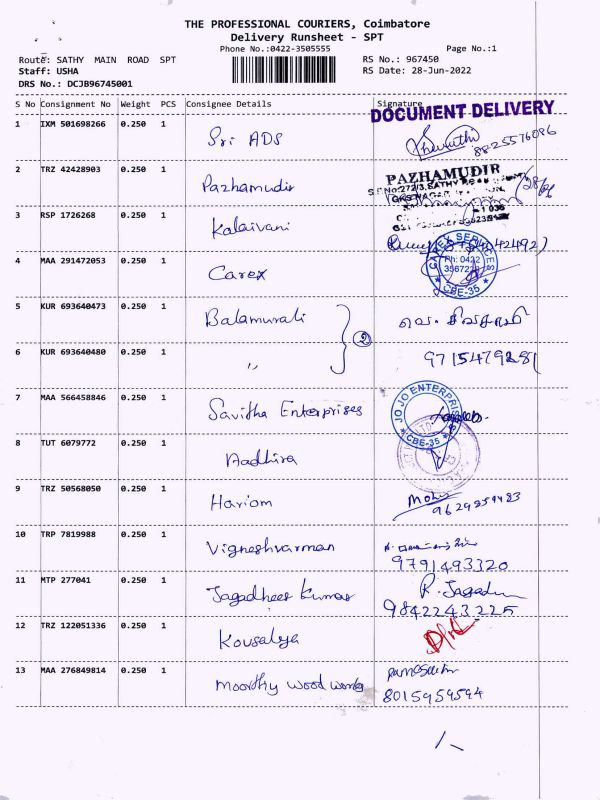 THE PROFESSIONAL COURIERS, Coimbatore
Delivery Runsheet - SPT
Phone No.:0422-3505555
Page No.:1
Route: SATHY MAIN ROAD SPT
RS No.: 967450
Staff: USHA
RS Date: 28-Jun-2022
DRS No.: DCJB96745001
S No Consignment No Weight PCS Consignee Details Signature
DOCUMENT DELIVERY
1 IXM 501698266 0.250 1 Sri ADS
8825576086
2 TRZ 42428903 0.250 1 Pazhamudir PAZHAMUDIR
3 RSP 1726268 0.250 1 Kalaivani
4 MAA 291472053 0.250 1 Carex CAREX SERVICES Ph: 0422 CBE-35
5 KUR 693640473 0.250 1 Balamurali
2
6 KUR 693640480 0.250 1 〃 9715479281
7 MAA 566458846 0.250 1 Savitha Enterprises JO JO ENTERPRISES CBE-35
8 TUT 6079772 0.250 1 Aadhira
9 TRZ 50568050 0.250 1 Hariom
9629859483
10 TRP 7819988 0.250 1 Vigneshvarman
9791493320
11 MTP 277041 0.250 1 Jagadhees Kumar R. Jagadn
9842243225
12 TRZ 122051336 0.250 1 Kousalya
13 MAA 276849814 0.250 1 Moorthy wood works
8015959594